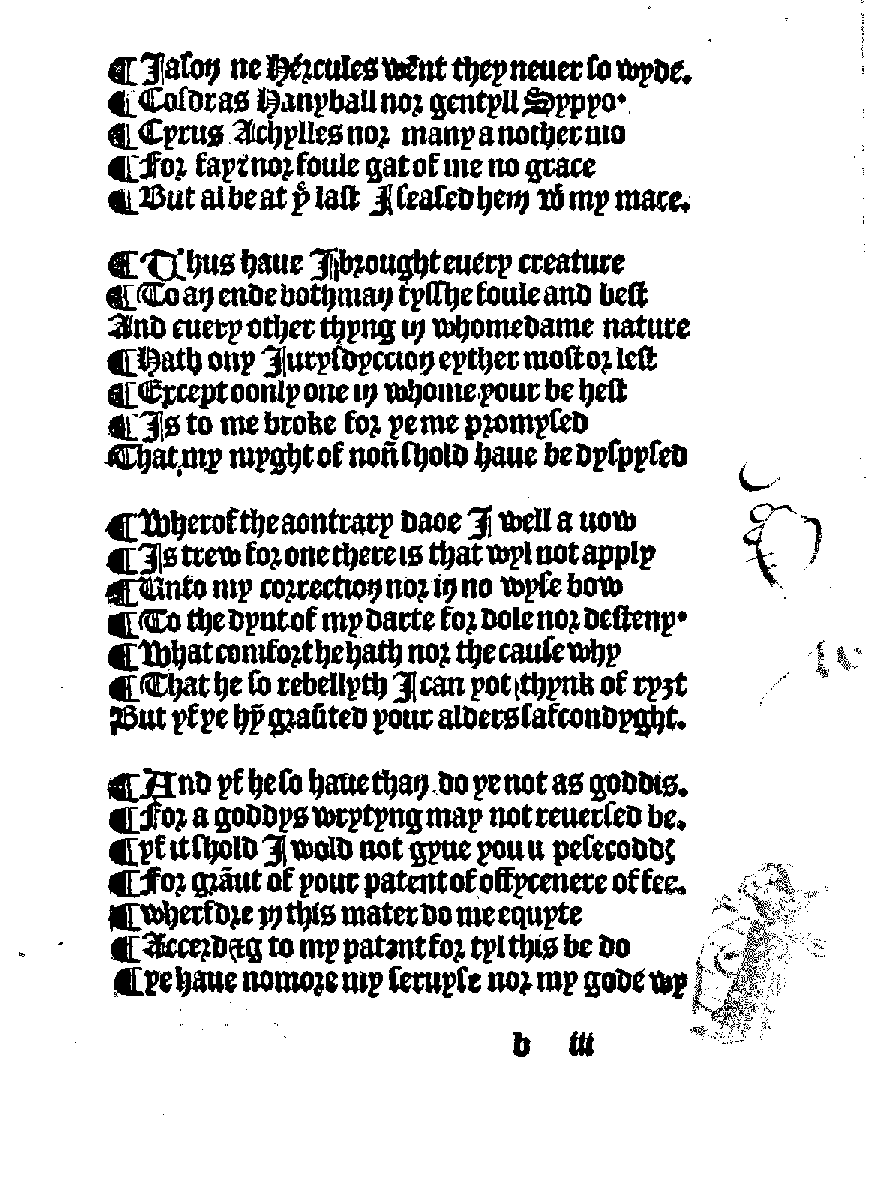 ¶ Jason ne Hercules went they neuer so wyde.
¶ Cosdras Hanyball nor gentyll Syppyo.
¶ Cyrus Achylles nor many a nother mo
¶ For fayr nor foule gat of me no grace
¶ But al be at yͤ last I seased hem wͭ my mace.
¶ Thus haue I brought euery creature
¶ To an ende both man fysshe foule and best
And euery other thyng in whome dame nature
¶ Hath ony Jurysdyccion eyther most or lest
¶ Except oonly one in whome your be hest
¶ Is to me broke for ye me promysed
That my myght of non̄ shold haue be dyspysed
¶ Wherof the aontrary daoe I well a uow
¶ Is trew for one there is that wyl not apply
¶ Unto my correction nor in no wyse bow
¶ To the dynt of my darte for dole nor desteny.
¶ What comfort he hath nor the cause why
¶ That he so rebellyth I can yot thynk of ryȝt
But yf ye hȳ graūted your alders safcondyght.
¶ And yf he so haue than do ye not as goddis.
¶ For a goddys wrytyng may not reuersed be.
¶ yf it shold I wold not gyue you u pesecoddꝭ
¶ For grāut of your patent of offycenere of fee.
¶ wherfore in this mater do me equyte
¶ to my patant for tyl this be do
¶ ye haue nomore my seruyse nor my gode wy
b iii